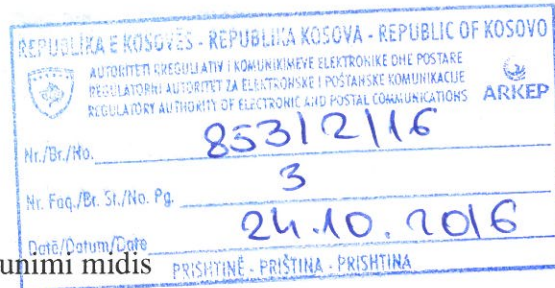 REPUBLIKA E KOSOVËS - REPUBLIKA KOSOVA - REPUBLIC OF KOSOVO
AUTORITETI RREGULLATIV I KOMUNIKIMEVE ELEKTRONIKE DHE POSTARE
REGULATORNI AUTORITET ZA ELEKTRONSKE I POŠTANSKE KOMUNIKACIJE
REGULATORY AUTHORITY OF ELECTRONIC AND POSTAL COMMUNICATIONS
ARKEP
Nr./Br./No. 853/2/16
Nr. Faq./Br. St./No. Pg. 3
Datë/Datum/Date 24.10.2016
PRISHTINË - PRIŠTINA - PRISHTINA
unimi midis